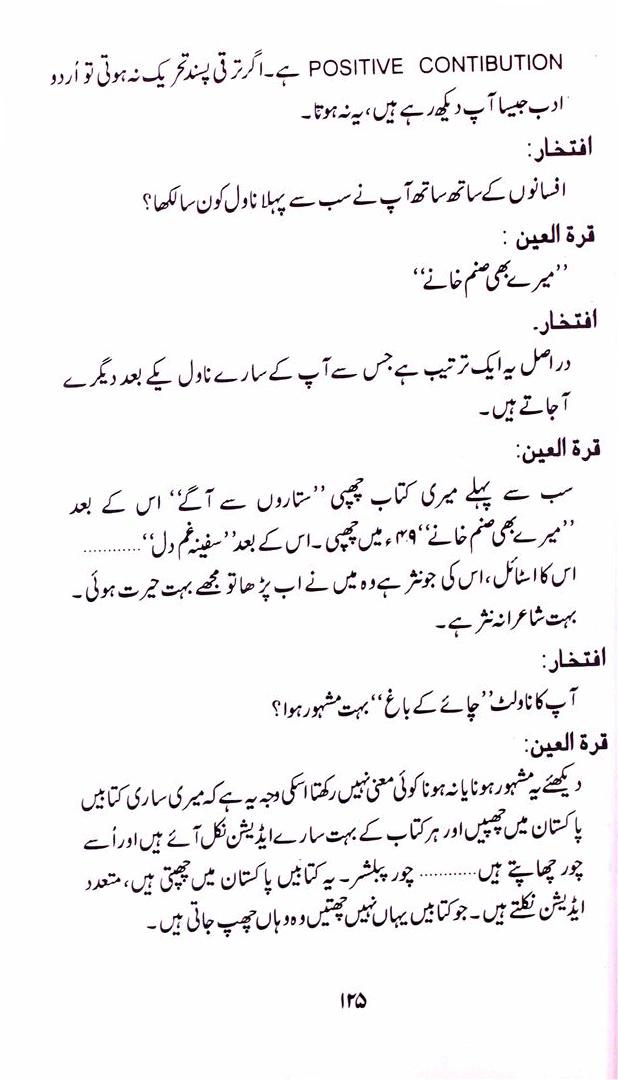 POSITIVE CONTIBUTION ہے۔اگر ترقی پسند تحریک نہ ہوتی تو اُردو
ادب جیسا آپ دیکھ رہے ہیں، یہ نہ ہوتا۔
افتخار:
افسانوں کے ساتھ ساتھ آپ نے سب سے پہلا ناول کون سا لکھا؟
قرۃ العین :
’’میرے بھی صنم خانے‘‘
افتخار۔
دراصل یہ ایک ترتیب ہے جس سے آپ کے سارے ناول یکے بعد دیگرے
آجاتے ہیں۔
قرۃ العین:
سب سے پہلے میری کتاب چھپی ’’ستاروں سے آگے‘‘ اس کے بعد
’’میرے بھی صنم خانے‘‘ ۴۹ء میں چھپی۔اس کے بعد ’’سفینۂ غم دل‘‘............
اس کا اسٹائل، اس کی جو نثر ہے وہ میں نے اب پڑھا تو مجھے بہت حیرت ہوئی۔
بہت شاعرانہ نثر ہے۔
افتخار:
آپ کا ناولٹ ’’چائے کے باغ‘‘ بہت مشہور ہوا؟
قرۃ العین:
دیکھئے یہ مشہور ہونا یا نہ ہونا کوئی معنی نہیں رکھتا اسکی وجہ یہ ہے کہ میری ساری کتابیں
پاکستان میں چھپیں اور ہر کتاب کے بہت سارے ایڈیشن نکل آئے ہیں اور اُسے
چور چھاپتے ہیں............ چور پبلشر۔ یہ کتابیں پاکستان میں چھپتی ہیں، متعدد
ایڈیشن نکلتے ہیں۔ جو کتابیں یہاں نہیں چھتیں وہ وہاں چھپ جاتی ہیں۔
۱۲۵